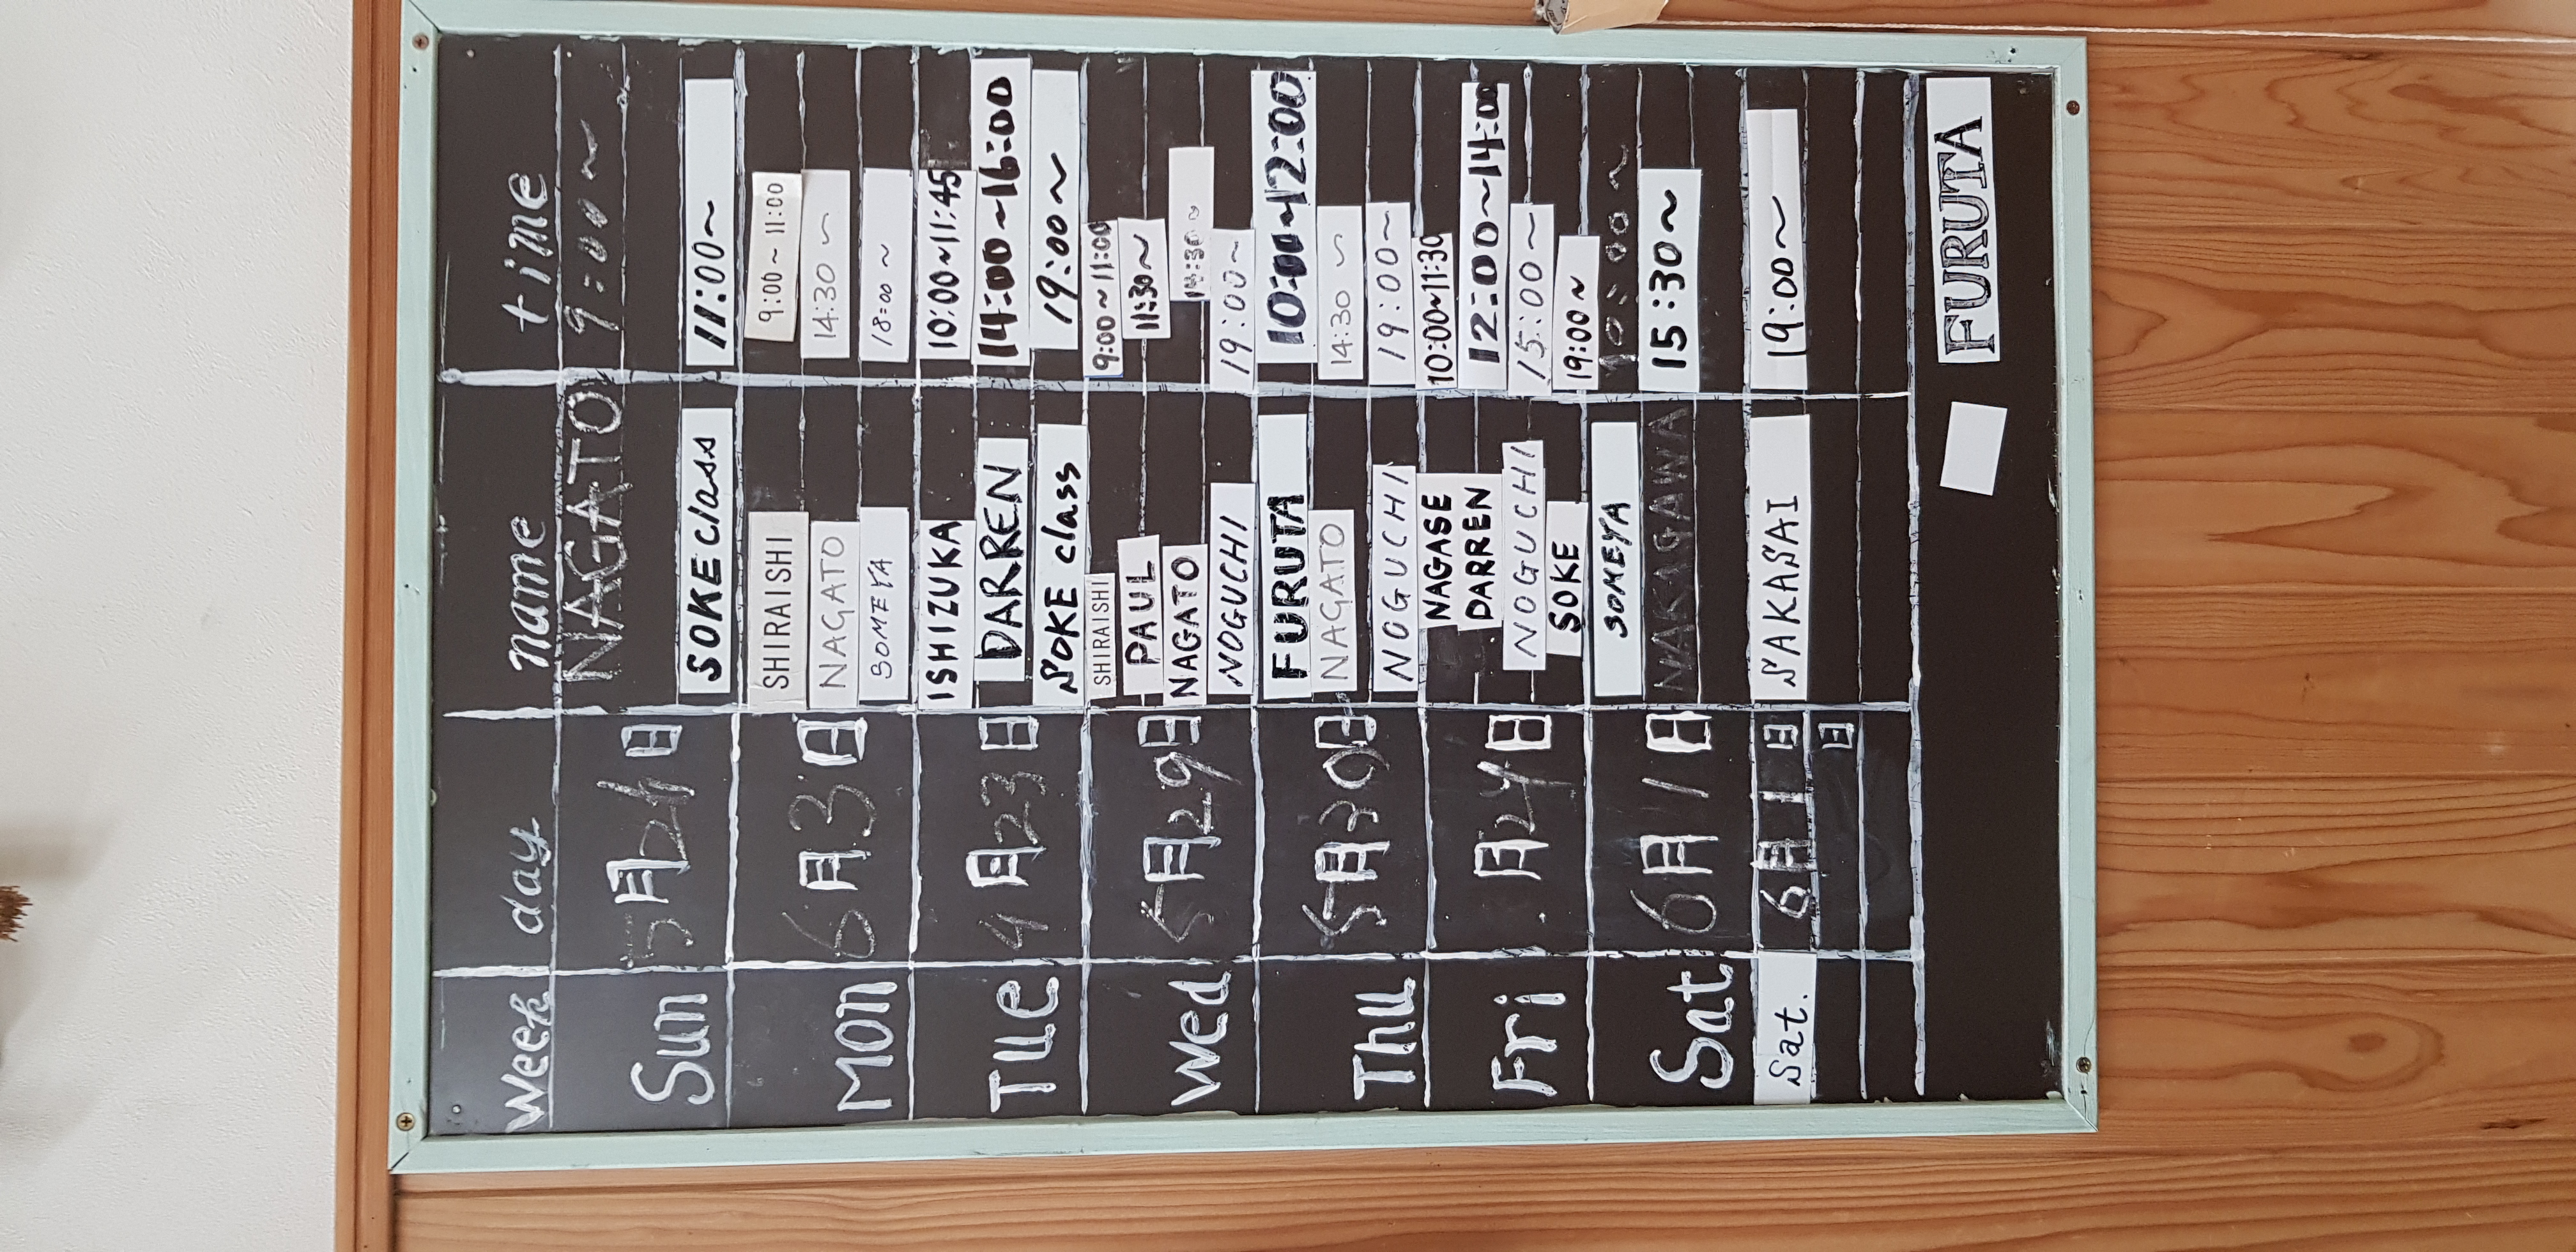 Week day name time
NAGATO 9:00~
Sun 5月26日
SOKE class 11:00~
SHIRAISHI 9:00~11:00
Mon 6月3日 NAGATO 14:30~
SOMEYA 18:00~
ISHIZUKA 10:00~11:45
Tue 4月23日 DARREN 14:00~16:00
SOKE class 19:00~
SHIRAISHI 9:00~11:00
PAUL 11:30~
Wed 5月29日 NAGATO 14:30~
NOGUCHI 19:00~
FURUTA 10:00~12:00
Thu 5月30日 NAGATO 14:30~
NOGUCHI 19:00~
NAGASE 10:00~11:30
DARREN 12:00~14:00
Fri 月24日 NOGUCHI 15:00~
SOKE 19:00~
SOMEYA 10:00~
Sat 6月1日 NAKAGAWA 15:30~
Sat. 6月1日 SAKASAI 19:00~
日
FURUTA